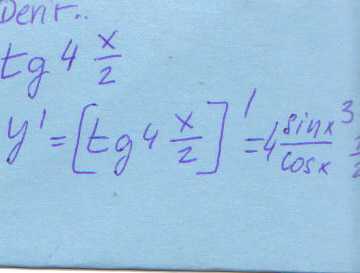 Denr..
tg 4 x/2
y' = [tg 4 x/2]' = 4 sinx³/cosx 1/2